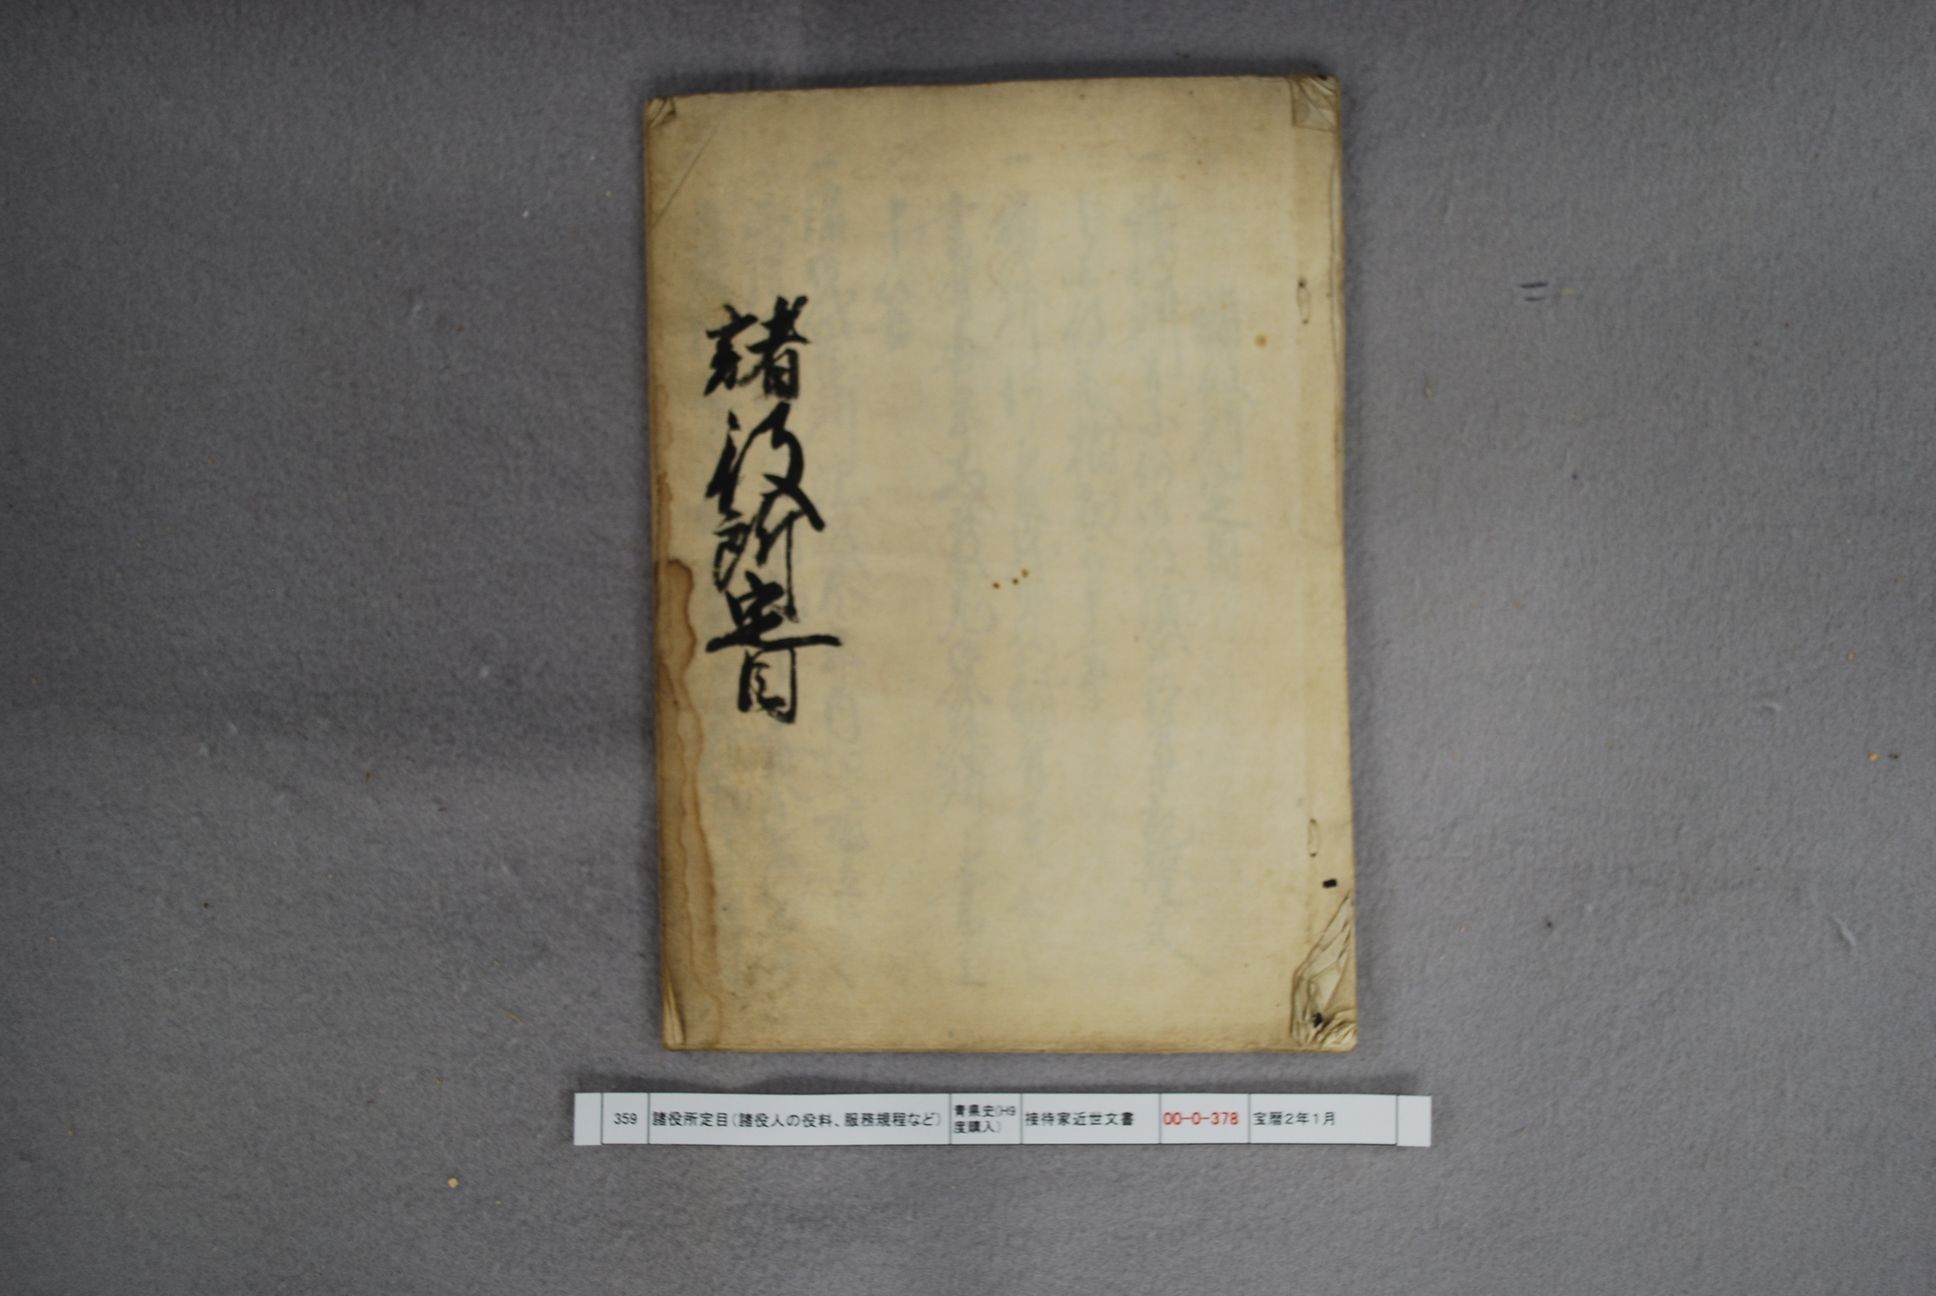 諸役所定目
359
諸役所定目(諸役人の役料、服務規程など)
青県史(H9
度購入)
接待家近世文書
00-0-378
宝暦2年1月